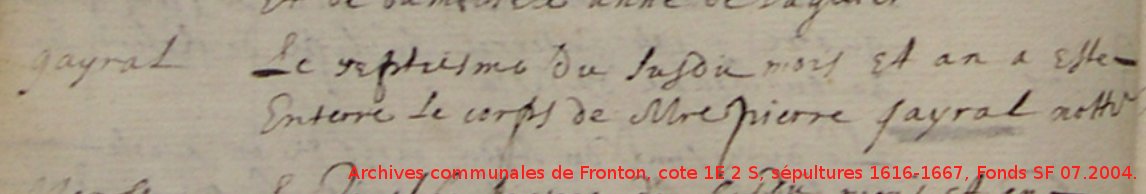 Et de dam
anne de
gayral
Le septiesme du susdu mois Et an a Este
Enterre Le corps de Mre pierre gayral nottr
Archives communales de Fronton, cote 1E 2 S, sépultures 1616-1667, Fonds SF 07.2004.